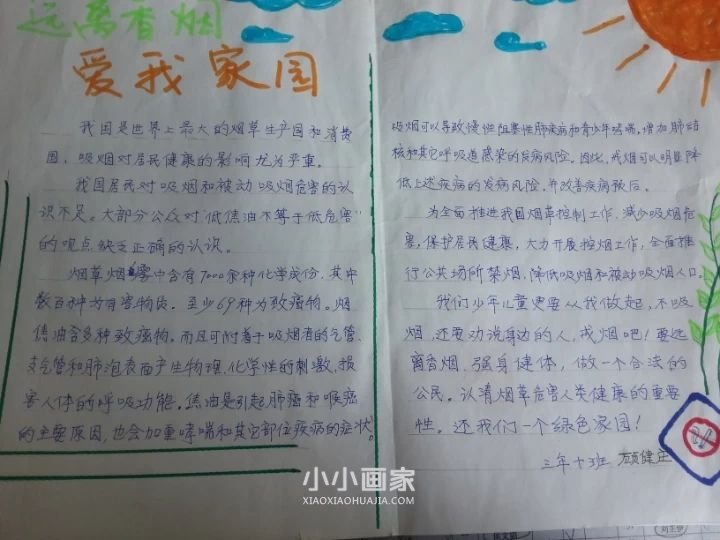 远离香烟
爱我家园
我国是世界上最大的烟草生产国和消费
国，吸烟对居民健康的影响尤为严重。
我国居民对吸烟和被动吸烟危害的认
识不足。大部分公众对“低焦油不等于低危害”
的观点缺乏正确的认识。
烟草烟雾中含有7000余种化学成份，其中
数百种为有害物质，至少69种为致癌物。烟
焦油含多种致癌物。而且可附着于吸烟者的气管、
支气管和肺泡表面产生物理、化学性的刺激，损
害人体的呼吸功能。焦油是引起肺癌和喉癌
的主要原因，也会加重哮喘和其它部位疾病的症状。
吸烟可以导致慢性阻塞性肺疾病和青少年哮喘，增加肺结
核和其它呼吸道感染的发病风险。因此，戒烟可以明显降
低上述疾病的发病风险，并改善疾病预后。
为全面推进我国烟草控制工作，减少吸烟危
害，保护居民健康，大力开展控烟工作，全面推
行公共场所禁烟，降低吸烟和被动吸烟人口。
我们少年儿童更要从我做起，不吸
烟，还要劝说身边的人，戒烟吧！要远
离香烟，强身健体，做一个合法的
公民。认清烟草危害人类健康的重要
性。还我们一个绿色家园！
三年十三班 顾健
小小画家
XIAOXIAOHUAJIA.COM